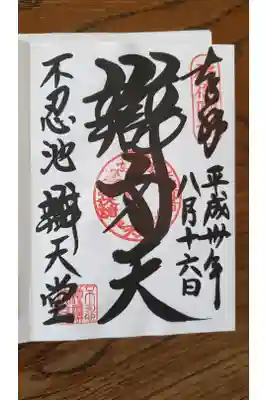 奉拝
平成卅年
八月十六日
辯才天
不忍池 辯天堂